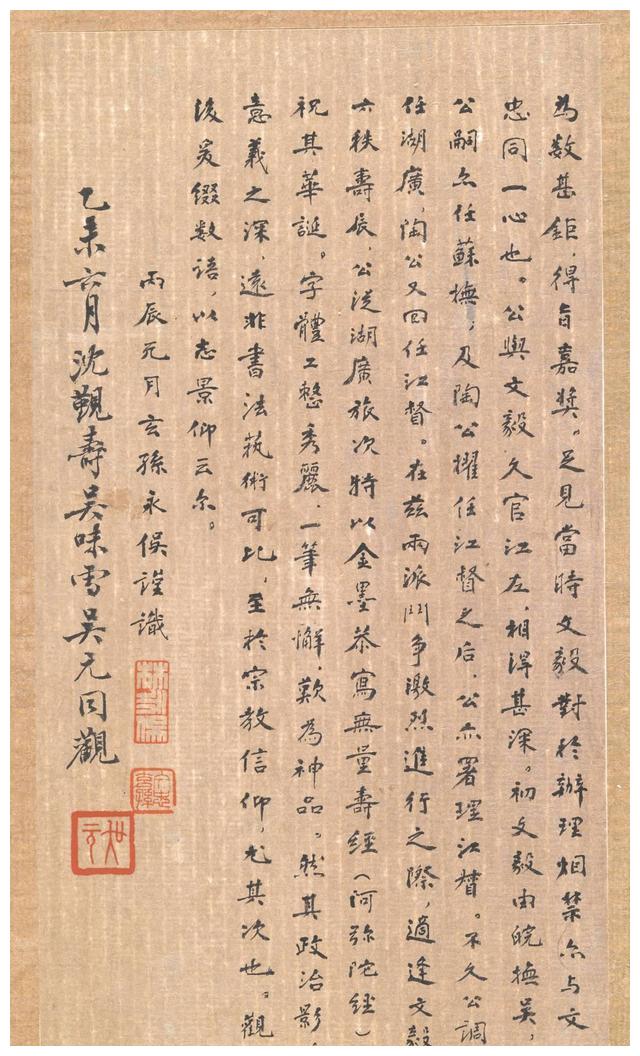 為数甚鉅，得旨嘉奖。足見當時文毅對於辦理烟禁亦与文
忠同一心也。公與文毅久官江左，相得甚深。初文毅由皖撫吴，
公嗣亦任蘇撫，及陶公擢任江督之后，公亦署理江督。不久公調
任湖廣，陶公又回任江督。在兹兩派鬥争激烈進行之際，適逢文毅
六秩壽辰，公從湖廣旅次特以金墨恭寫無量壽經（阿弥陀經）
祝其華誕。字體工整秀麗，一筆無懈，歎為神品。然其政治影
意義之深，遠非書法執術可比，至於宗教信仰，尤其次也。觀
後爰綴数語，以志景仰云尔。
丙辰元月玄孫永俁謹識
乙未六月沈觀壽吴味雪吴元同觀